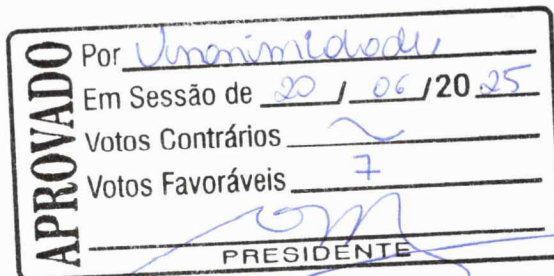 APROVADO
Por Unanimidade
Em Sessão de 20 / 06 / 20 25
Votos Contrários ~
Votos Favoráveis 7
PRESIDENTE